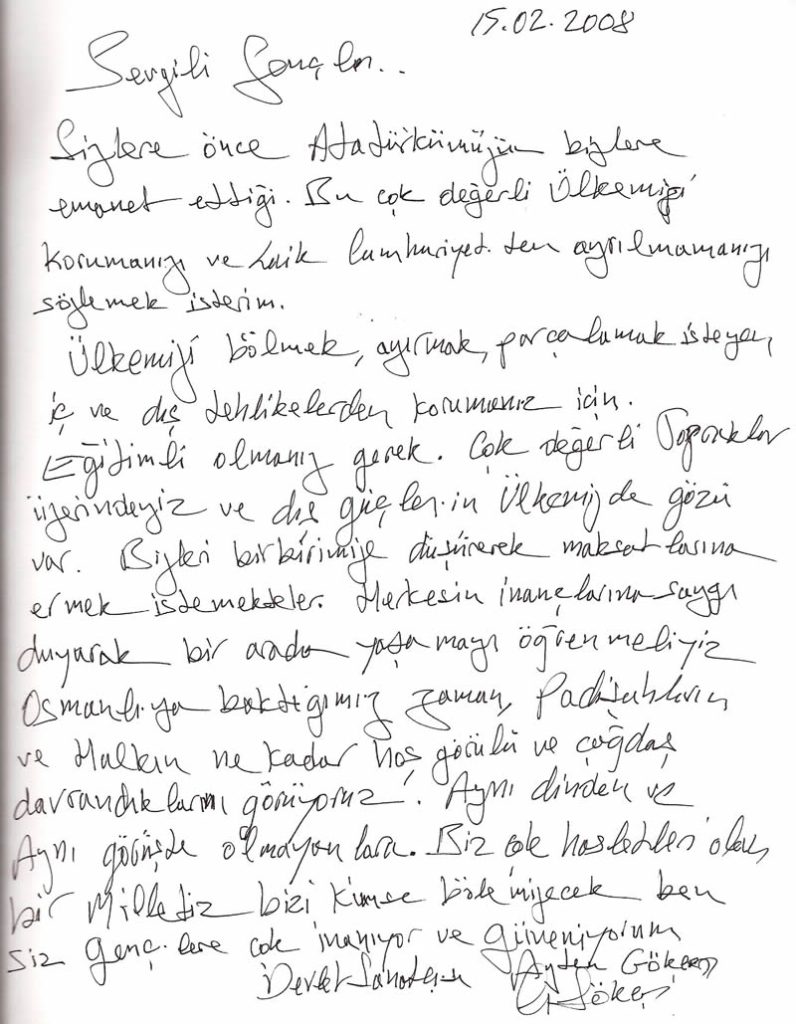 15.02.2008
Sevgili Gençler..
Sizlere önce Atatürkümüzün bizlere
emanet ettiği. Bu çok değerli Ülkemizi
korumanızı ve Laik Cumhuriyet.ten ayrılmamanızı
söylemek isterim.
Ülkemizi bölmek, ayırmak, parçalamak isteyen,
iç ve dış tehlikelerden korumanız için.
Eğitimli olmanız gerek. Çok değerli Topraklar
üzerindeyiz ve dış güçlerin Ülkemizde gözü
var. Bizleri birbirimize düşürerek maksatlarına
ermek istemekteler. Herkesin inançlarına saygı
duyarak bir arada yaşamayı öğrenmeliyiz
Osmanlıya baktığımız zaman, Padişahların
ve Halkın ne kadar hoş görülü ve çağdaş
davrandıklarını görüyoruz. Aynı dinden ve
Aynı görüşte olmayanlara. Biz çok hasletleri olan,
bir Milletiz bizi kimse bölemiyecek ben
siz gençlere çok inanıyor ve güveniyorum
Devlet Sanatçısı Ayten Gökçer
Gökçer